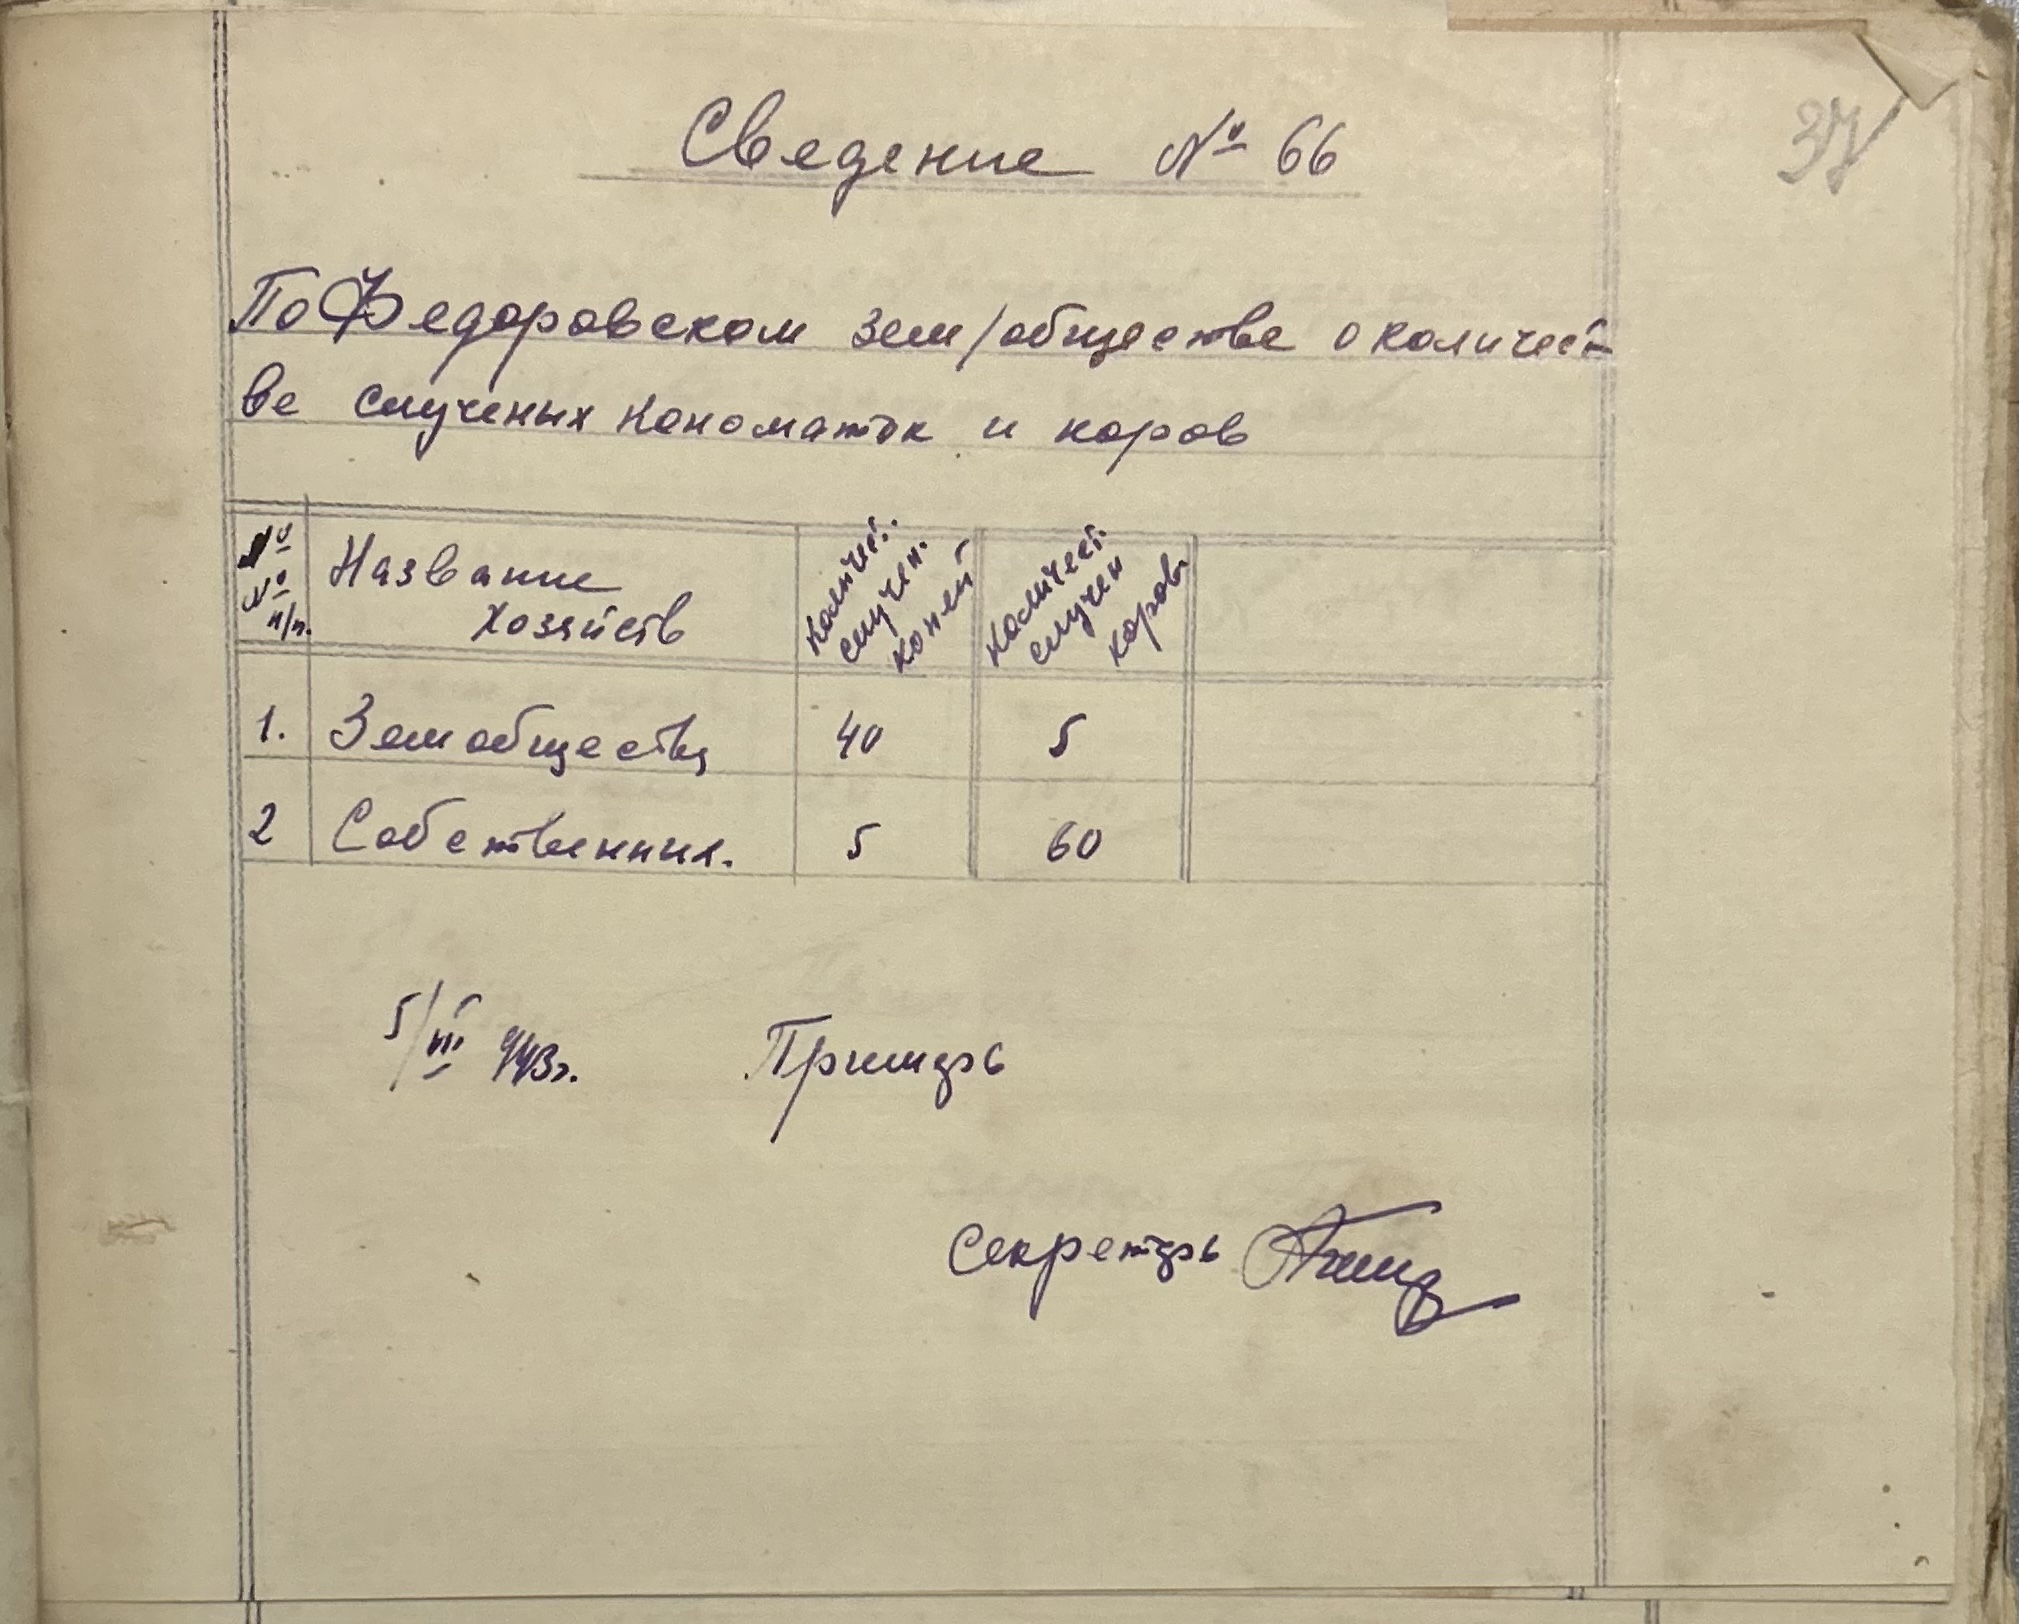 37
Сведение № 66
По Федоровском зем/обществе о количест-
ве слученых кономаток и коров
№ № п/п. Название хозяйств Количест. случен. коней Количест. случен коров
1. Земобществ 40 5
2 Собственник. 5 60
5/III 943г. Примарь
Секретарь